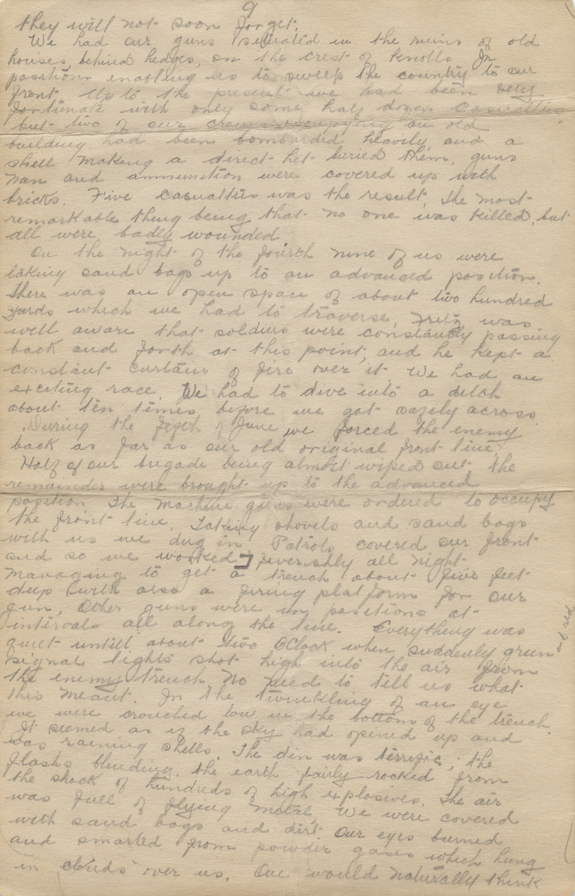 9
they will not soon forget.
We had our guns situated in the ruins of old
houses, behind hedges, on the crest of knolls In
positions enabling us to sweep the country to our
front. Up to the present we had been very
fortunate with only some half dozen casualties
but two of our crews occupying an old
building had been bombarded heavily, and a
shell making a direct hit buried them, guns
man and ammunition were covered up with
bricks. Five casualties was the result. The most
remarkable thing being that no one was killed, but
all were badly wounded
On the night of the fourth nine of us were
taking sand bags up to an advanced position.
There was an open space of about two hundred
yards which we had to traverse, Fritz was
well aware that soldiers were constantly passing
back and forth at this point, and he kept a
constant curtain of fire over it. We had an
exciting race. We had to dive into a ditch
about ten times before we got safely across
During the fight of June we forced the enemy
back as far as our old original front line.
Half of our brigade being almost wiped out the
remainder were brought up to the advanced
position. The machine guns were ordered to occupy
the front line. Taking shovels and sand bags
with us we dug in. Patrols covered our front
and so we worked feverishly all night
managing to get a trench about five feet
deep with also a firing platform for our
gun. Other guns were in positions at
intervals all along the line. Everything was
quiet untill about two OClock when suddenly green and red
signal lights shot high into the air from
the enemy trench no need to tell us what
this meant. In the twinkling of an eye
we were crouched low in the bottom of the trench.
It seemed as if the sky had opened up and
was raining shells. The din was terrific, the
flashs blinding. the earth fairly rocked from
the shock of hundreds of high explosives. The air
was full of flying metal. We were covered
with sand bags and dirt. Our eyes burned
and smarted from powder gases which hung
in clouds over us. One would naturally think